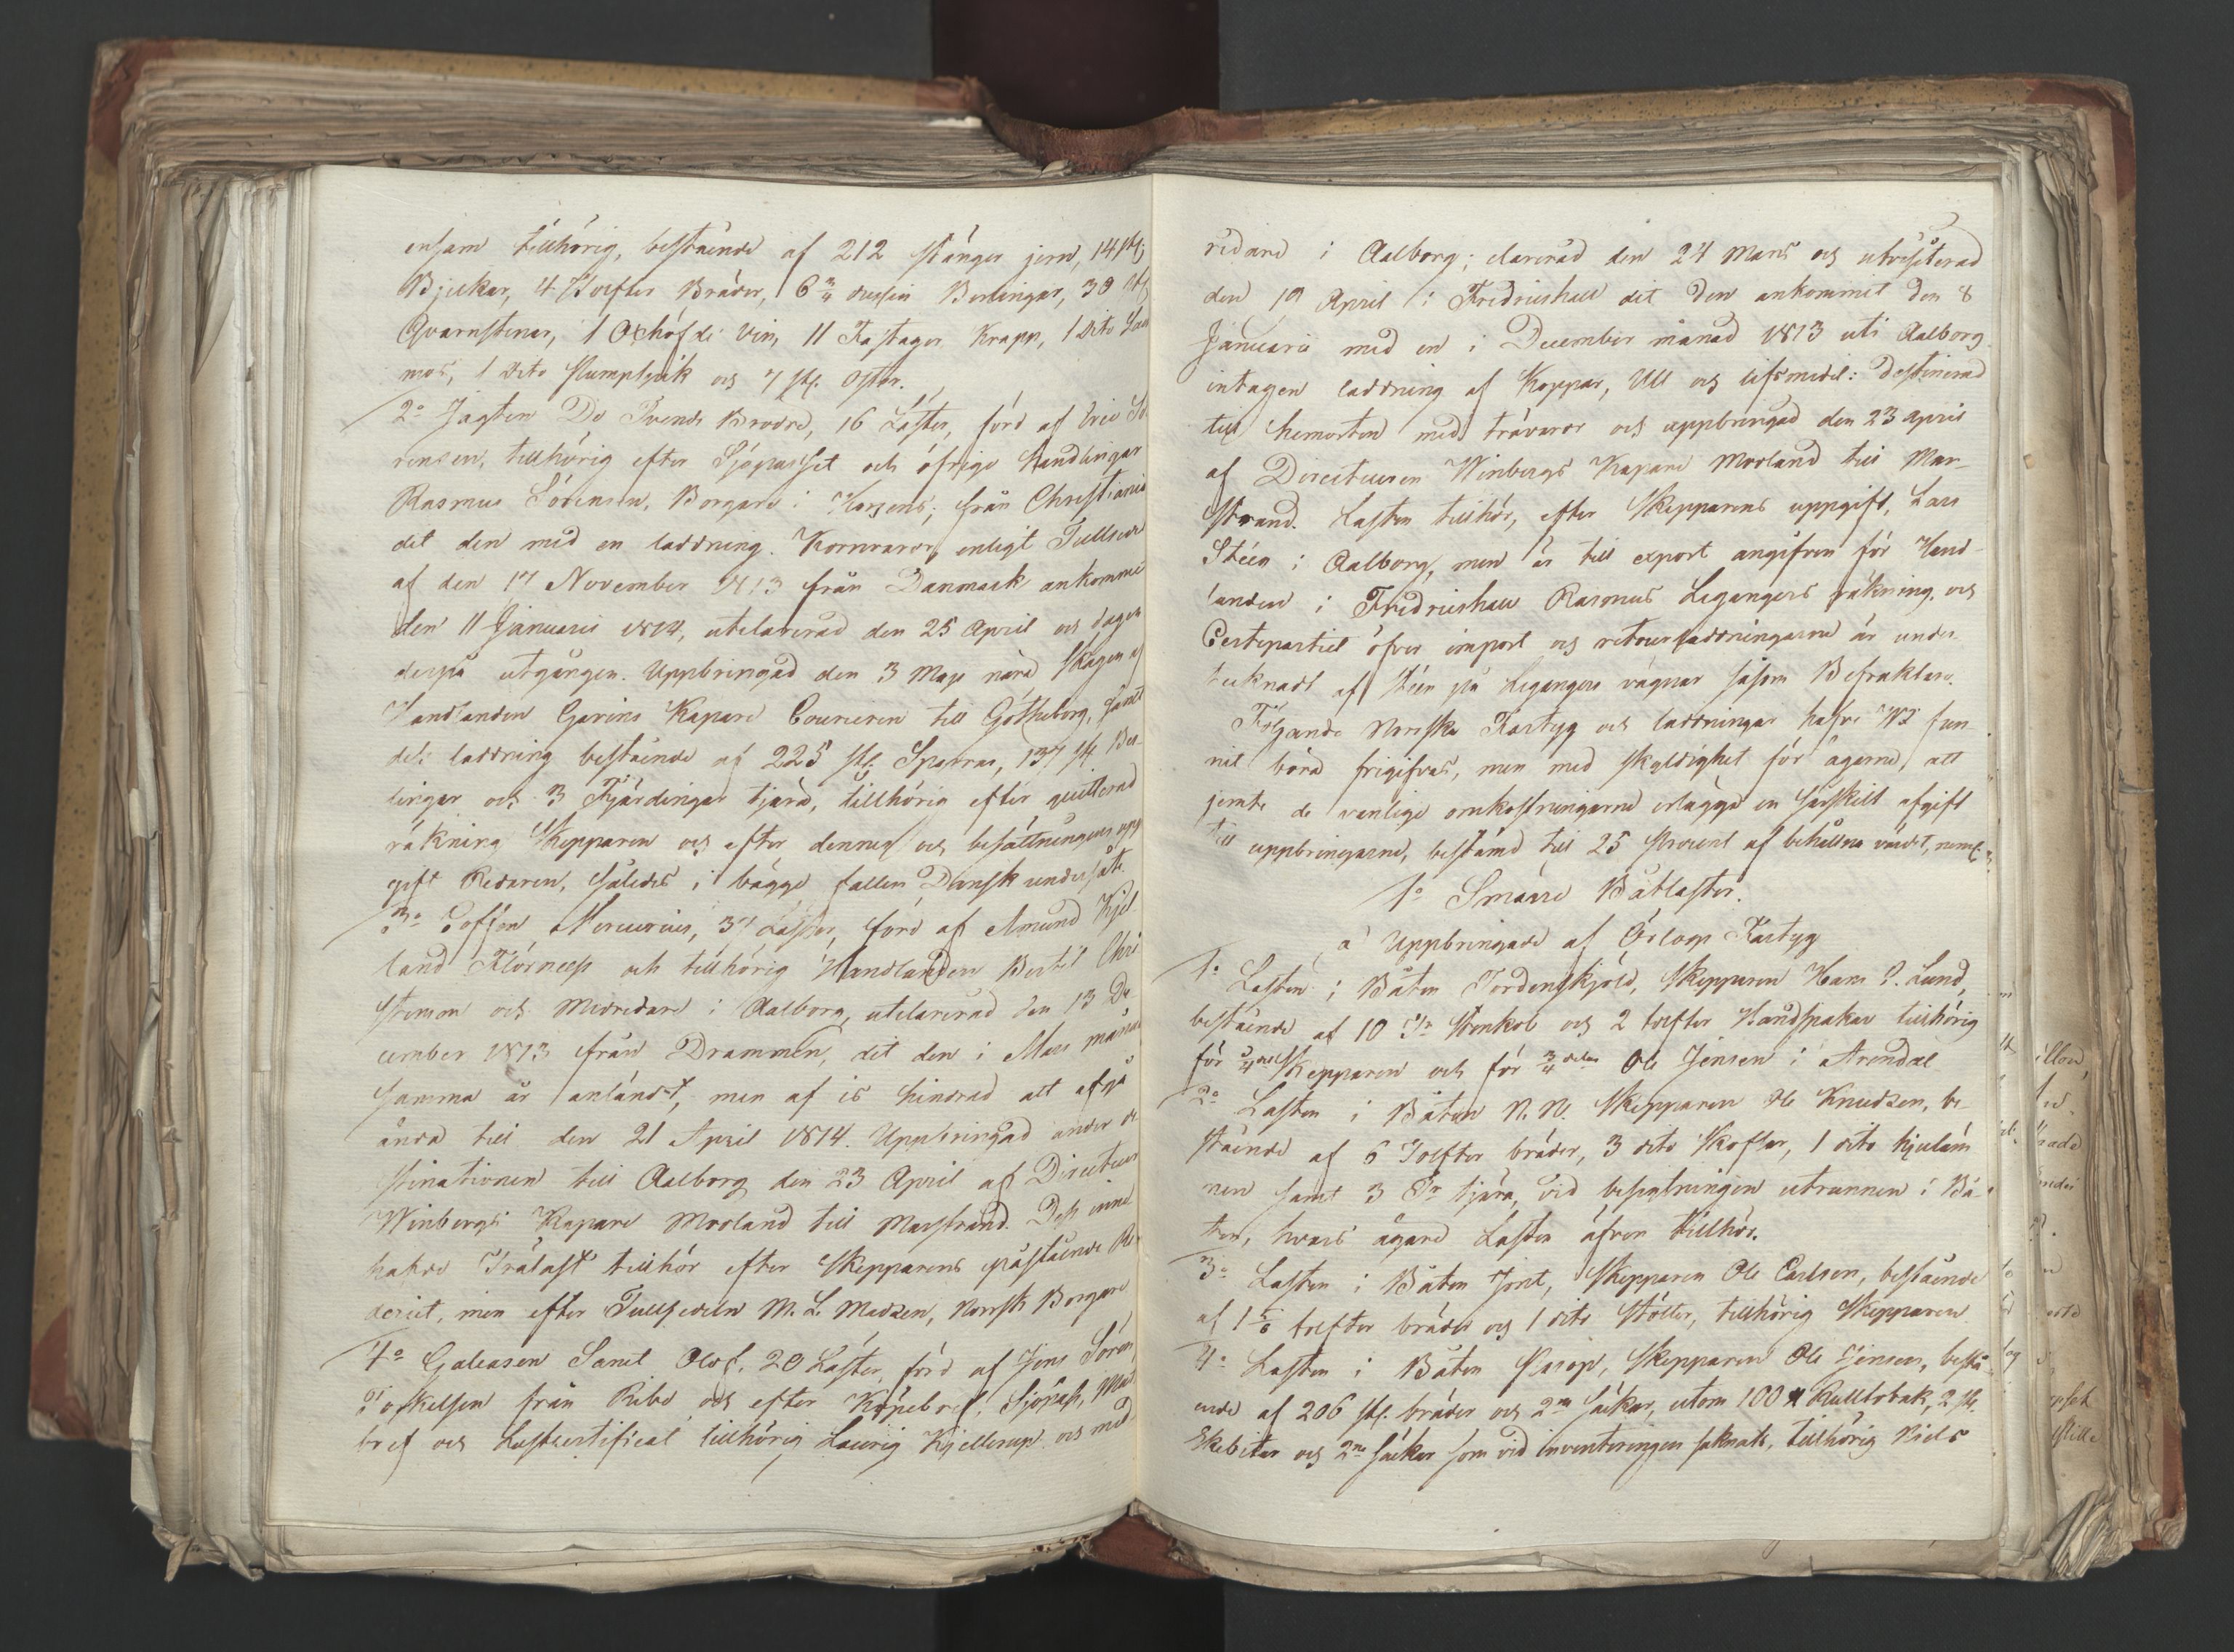 ensam tillhörig, bestående af 212 stänger jern, 14 st.
Bjelkar, 4 Tolfter Bräder, 6 3/4 dussin Berlingar, 30 st.
Qvarnstenar, 1 Oxhöfde Vin, 11 Fastager Krapp, 1 dito
1 dito och 7 st. Ostar.
2o Jagten De Tvende Brødre, 16 Läster, förd af Eric Sö
rensen, tillhörig efter Sjöpasset och öfrige handlingar
Rasmus Sörensen, Borgare i Horsens; från Christiania
dit den med en laddning Kornvaror, enligt Tullsedel
af den 17 November 1813 från Danmark ankommit
den 11 Januarii 1814, utclarerad den 25 April och dagen
derpå utgången. Uppbringad den 3 Maji nära Skagen af
Handlanden Gavins Kapare Courieren till Götheborg, samt
dess laddning bestående af 225 st. Sparrar, 137 st. Ber-
lingar och 3 Fjärdingar tjära, tillhörig efter quitterad
räkning Skepparen och efter dennes och besättningens upp
gift Redaren, således i bägge fallen Dansk undersåte.
3o Coffen Mercurius, 37 Läster, förd af Amund Kjel
land och tillhörig Handlanden Bertil Chri
stensen och Medredare i Aalborg, utclarerad den 13 De-
cember 1813 från Drammen, dit den i Mars månad
samma år anländt, men af is hindrad att afgå
ända till den 21 April 1814. Uppbringad under de
stinationen till Aalborg den 23 April af Directeur
Winbergs Kapare Morland till Marstrand. Dess inne
hafde Trälast tillhör efter Skepparens påstående Re
deriet, men efter Tullsedeln M. L. Madsen, Norrsk Borgare
4o Galeasen Sanct Olof, 20 Läster, förd af Jens Sören
Toskelsen från Ribe och efter Köpebref, Sjöpass, Mät
bref och Lastcertificat tillhörig Lauriz Kjellerup och med
redare i Aalborg; clarerad den 24 Mars och utvisiterad
den 19 April i Fredrichshall dit den ankommit den 8
Januarii med en i December månad 1813 uti Aalborg
intagen laddning af Koppar, Ull och lifsmedel: destinerad
till hemorten med trävaror och uppbringad den 23 April
af Directeuren Winbergs Kapare Morland till Mar-
strand. Lasten tillhör, efter Skepparens uppgift, Lars
Stéen i Aalborg, men är till export angifven för Hand-
landen i Fredrichshall Rasmus Legangers räkning, och
Certepartiet öfver import och retourladdningarne är under-
tecknadt af Stéen på Legangers vägnar såsom Befraktare.
Följande Norrska Fartyg och laddningar hafve Wi fun-
nit böra frigifvas, men med skyldighet för ägarne, att
jemte de vanlige omkostningarne erlägga en särskilt afgift
till uppbringarne, bestämd till 25 procent af behållna värdet, neml:
1o Smärre Båtlaster.
a Uppbringade af Örlogs Fartyg
1o Lasten i Båten Tordenskjold, Skepparen Hans P. Lund,
bestående af 10 Tr Stenkol och 2 tolfter Handspakar tillhörig
för 1/4 del Skepparen och för 3/4 delar Ole Jensen i Arendal
2o Lasten i Båten N. N. Skepparen Ole Knudsen, be-
stående af 6 Tolfter bräder, 3 dito Skofler, 1 dito
nen samt 3 Tr tjära, vid besigtningen utrunnen i Bå-
ten, hvars ägare Lasten äfven tillhör.
3o Lasten i Båten Skepparen Ole Carlsen, bestående
af 1 5/6 tolfter bräder och 1 dito Stölter, tillhörig Skepparen
4o Lasten i Båten Skepparen Ole Jensen, bestå-
ende af 206 st. bräder och 2ne säckar, utom 100 Rulltobak, 2 st.
och 2ne säckar som vid inventeringen saknats, tillhörig Niels